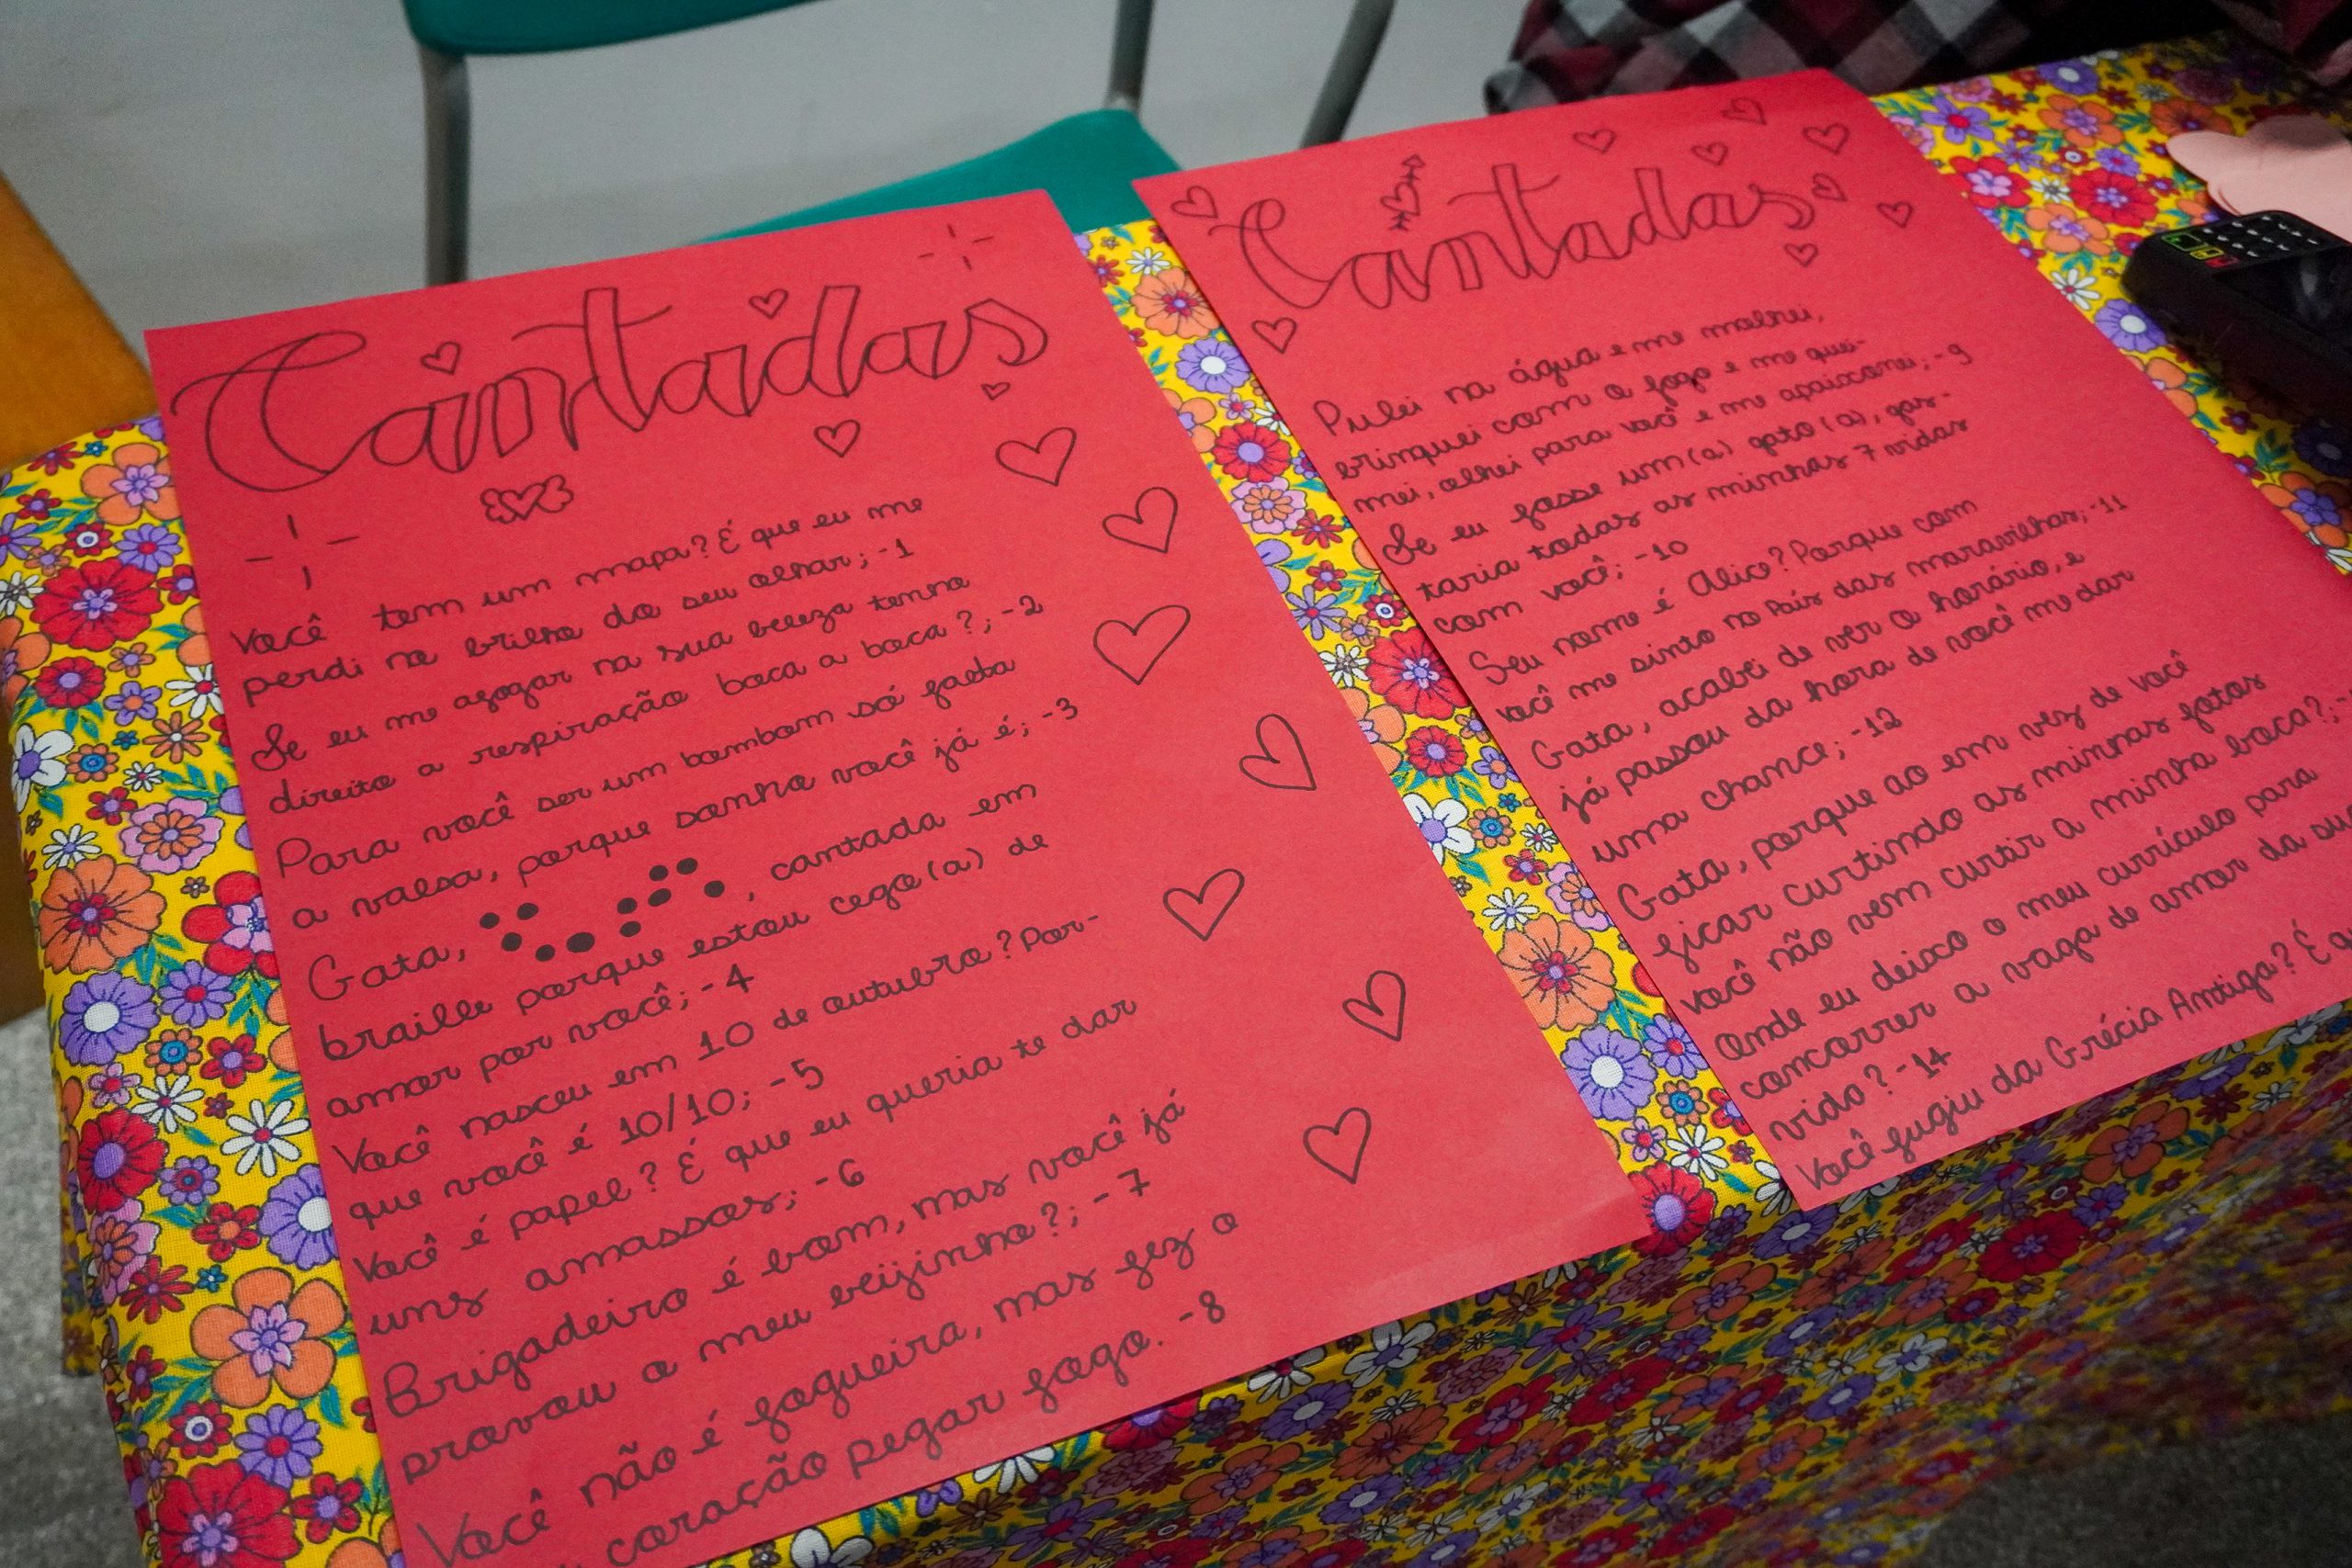 Cantadas
Você tem um mapa? É que eu me
perdi no brilho do seu olhar; -1
Se eu me afogar na sua beleza tenho
direito a respiração boca a boca?; -2
Para você ser um bombom só falta
a valsa, porque sonho você já é; -3
Gata, , cantada em
braille porque estou cego(a) de
amor por você; -4
Você nasceu em 10 de outubro? Por-
que você é 10/10; -5
Você é papel? É que eu queria te dar
uns amassos; -6
Brigadeiro é bom, mas você já
provou o meu beijinho?; -7
Você não é fogueira, mas fez o
coração pegar fogo. -8
Cantadas
Pulei na água e me molhei,
brinquei com o fogo e me quei-
mei, olhei para você e me apaixonei; -9
Se eu fosse um(a) gato(a), gas-
taria todas as minhas 7 vidas
com você; -10
Seu nome é Alice? Porque com
você me sinto no País das maravilhas; -11
Gata, acabei de ver o horário, e
já passou da hora de você me dar
uma chance; -12
Gata, porque ao em vez de você
ficar curtindo as minhas fotos
você não vem curtir a minha boca?;
Onde eu deixo o meu currículo para
concorrer a vaga de amor da
vida? -14
Você fugiu da Grécia Antiga? É